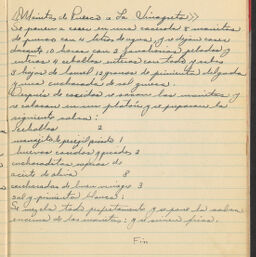 《Manitas de Puerco a La Vinagreta》
Se ponen a cocer en una cacerola 8 manitas
de puerco con 4 litros de agua, y se dejan cocer
durante 10 horas con 2 zanahorias peladas y
enteras 4 cebollas enteras con todo y rabo
3 hojas de laurel 12 granos de pimienta delgada
y una cucharada de sal gruesa.
Después de cocidas se sacan las manitas y
se colocan en un platón y se prepara la
siguiente salsa:
cebollas 2
manojito de perejil picado 1
huevos cocidos picados 3
cucharaditas copeteadas de
aceite de oliva 8
cucharadas de buen vinagre 3
sal y pimienta blanca:
Se mezcla todo perfectamente y se pone la salsa
encima de las manitas: y se sirven frías.
Fin